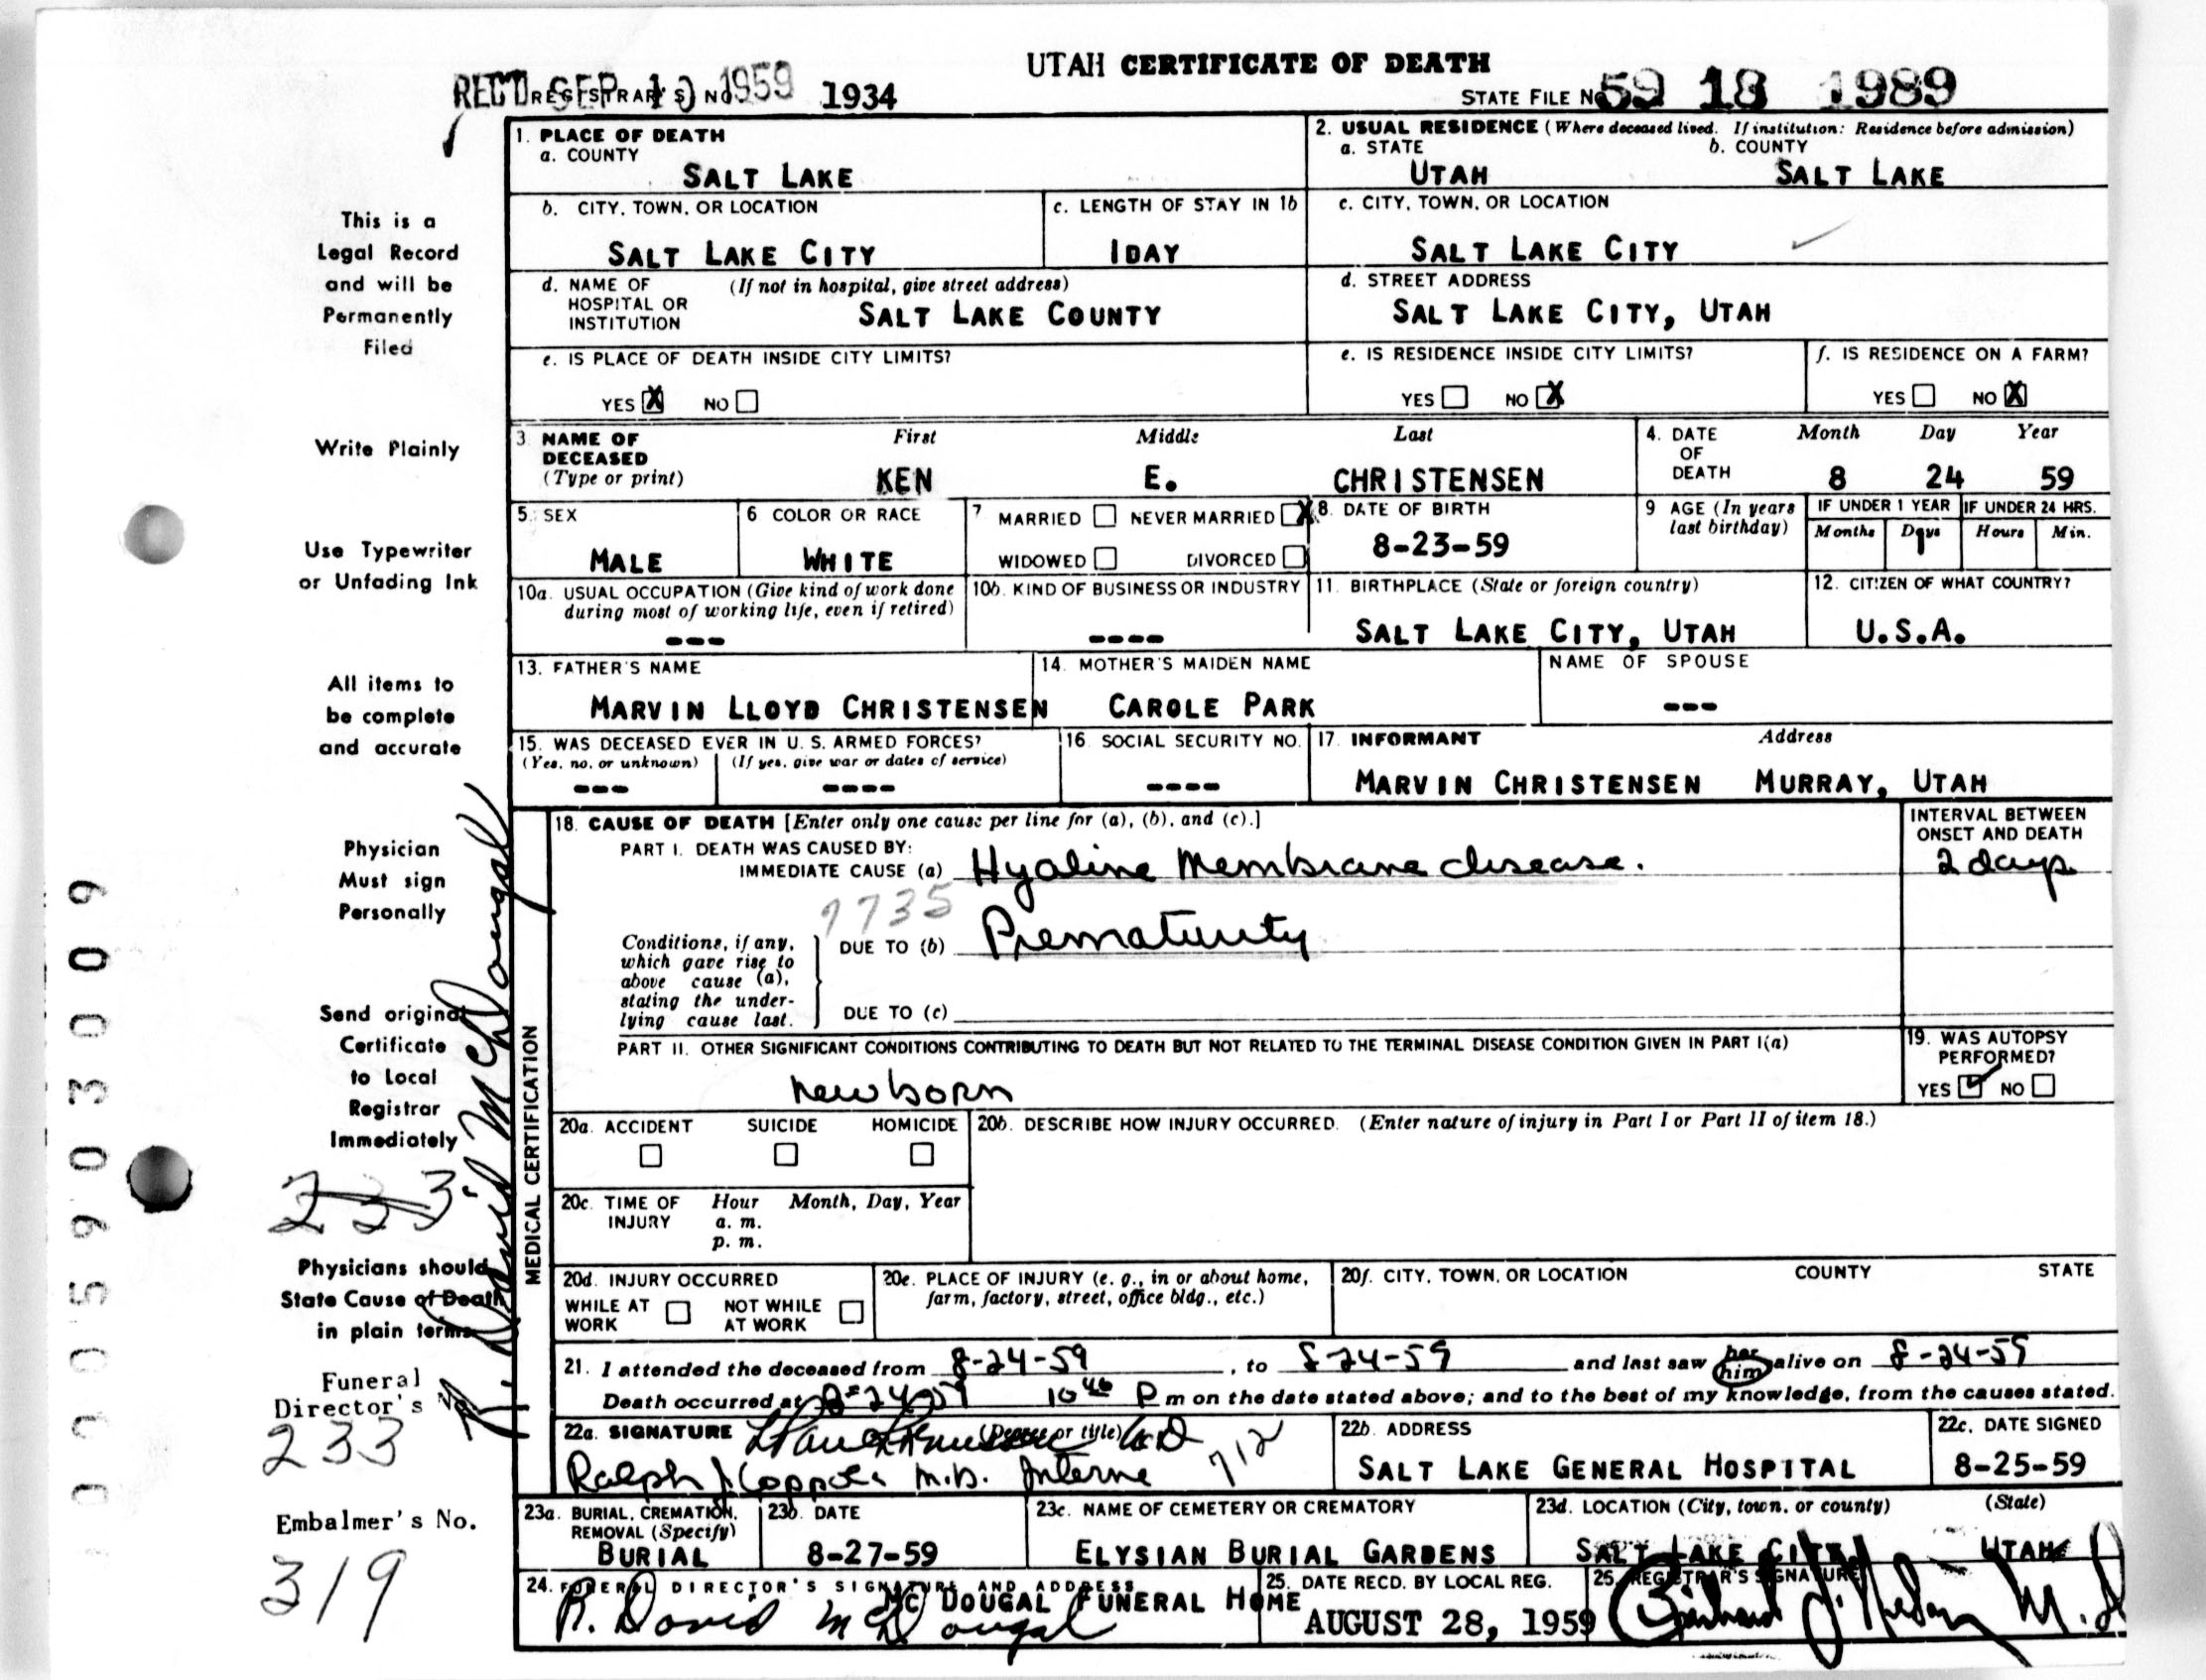 UTAH CERTIFICATE OF DEATH
REC'D SEP 10 1959 REGISTRAR'S NO. 1934
STATE FILE NO. 59 18 1989
1. PLACE OF DEATH
a. COUNTY
SALT LAKE
2. USUAL RESIDENCE (Where deceased lived. If institution: Residence before admission)
a. STATE b. COUNTY
UTAH SALT LAKE
b. CITY, TOWN, OR LOCATION
SALT LAKE CITY
c. LENGTH OF STAY IN 1b
1DAY
c. CITY, TOWN, OR LOCATION
SALT LAKE CITY
d. NAME OF HOSPITAL OR INSTITUTION (If not in hospital, give street address)
SALT LAKE COUNTY
d. STREET ADDRESS
SALT LAKE CITY, UTAH
e. IS PLACE OF DEATH INSIDE CITY LIMITS?
YES X NO
e. IS RESIDENCE INSIDE CITY LIMITS?
YES NO X
f. IS RESIDENCE ON A FARM?
YES NO X
3. NAME OF DECEASED (Type or print)
First Middle Last
KEN E. CHRISTENSEN
4. DATE OF DEATH
Month Day Year
8 24 59
5. SEX
MALE
6 COLOR OR RACE
WHITE
7 MARRIED NEVER MARRIED X
WIDOWED DIVORCED
8. DATE OF BIRTH
8-23-59
9 AGE (In years last birthday)
IF UNDER 1 YEAR IF UNDER 24 HRS.
Months Days Hours Min.
1
10a. USUAL OCCUPATION (Give kind of work done during most of working life, even if retired)
---
10b. KIND OF BUSINESS OR INDUSTRY
----
11. BIRTHPLACE (State or foreign country)
SALT LAKE CITY, UTAH
12. CITIZEN OF WHAT COUNTRY?
U.S.A.
13. FATHER'S NAME
MARVIN LLOYD CHRISTENSEN
14. MOTHER'S MAIDEN NAME
CAROLE PARK
NAME OF SPOUSE
---
15. WAS DECEASED EVER IN U. S. ARMED FORCES?
(Yes, no, or unknown) (If yes, give war or dates of service)
--- ----
16. SOCIAL SECURITY NO.
----
17. INFORMANT Address
MARVIN CHRISTENSEN MURRAY, UTAH
MEDICAL CERTIFICATION
18. CAUSE OF DEATH [Enter only one cause per line for (a), (b), and (c).]
PART I. DEATH WAS CAUSED BY:
IMMEDIATE CAUSE (a) Hyaline Membrane disease.
INTERVAL BETWEEN ONSET AND DEATH
2 days
7735
Conditions, if any, which gave rise to above cause (a), stating the underlying cause last.
DUE TO (b) Prematurity
DUE TO (c)
PART II. OTHER SIGNIFICANT CONDITIONS CONTRIBUTING TO DEATH BUT NOT RELATED TO THE TERMINAL DISEASE CONDITION GIVEN IN PART I(a)
newborn
19. WAS AUTOPSY PERFORMED?
YES ✓ NO
20a. ACCIDENT SUICIDE HOMICIDE
20b. DESCRIBE HOW INJURY OCCURRED. (Enter nature of injury in Part I or Part II of item 18.)
20c. TIME OF INJURY Hour Month, Day, Year
a. m.
p. m.
20d. INJURY OCCURRED
WHILE AT WORK NOT WHILE AT WORK
20e. PLACE OF INJURY (e. g., in or about home, farm, factory, street, office bldg., etc.)
20f. CITY, TOWN, OR LOCATION COUNTY STATE
21. I attended the deceased from 8-24-59, to 8-24-59 and last saw her him alive on 8-24-59
Death occurred at 8-24-59 10 40 P m on the date stated above; and to the best of my knowledge, from the causes stated.
22a. SIGNATURE (Degree or title)
Ralph J Coppola M.D. Interne 712
22b. ADDRESS
SALT LAKE GENERAL HOSPITAL
22c. DATE SIGNED
8-25-59
23a. BURIAL, CREMATION, REMOVAL (Specify)
BURIAL
23b. DATE
8-27-59
23c. NAME OF CEMETERY OR CREMATORY
ELYSIAN BURIAL GARDENS
23d. LOCATION (City, town, or county) (State)
SALT LAKE CITY UTAH
24. FUNERAL DIRECTOR'S SIGNATURE AND ADDRESS
MC DOUGAL FUNERAL HOME
R. David McDougal
25. DATE RECD. BY LOCAL REG.
AUGUST 28, 1959
25. REGISTRAR'S SIGNATURE
M.D
This is a
Legal Record
and will be
Permanently
Filed
Write Plainly
Use Typewriter
or Unfading Ink
All items to
be complete
and accurate
Physician
Must sign
Personally
Send original
Certificate
to Local
Registrar
Immediately
233
Physicians should
State Cause of Death
in plain terms
Funeral
Director's No.
233
Embalmer's No.
319
R. David McDougal